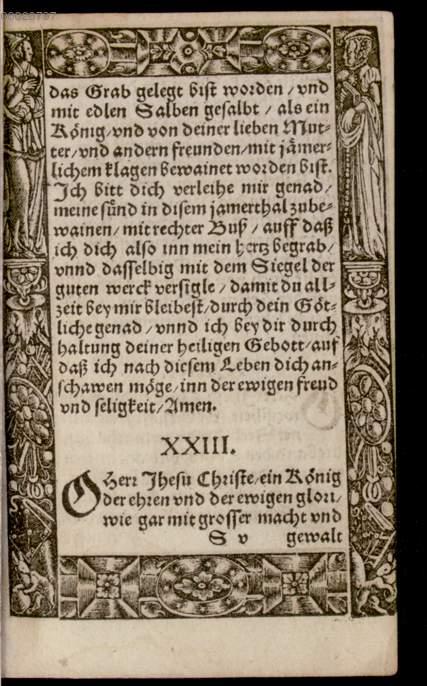 das Grab gelegt bist worden / vnd
mit edlen Salben gesalbt / als ein
König / vnd von deiner lieben Mut-
ter / vnd andern freunden / mit jämer-
lichem klagen bewainet worden bist.
Ich bitt dich verleihe mir genad /
meine sünd in disem jamerthal zube-
wainen / mit rechter Buß / auff daß
ich dich also inn mein hertz begrab /
vnnd dasselbig mit dem Siegel der
guten werck versigle / damit du all-
zeit bey mir bleibest / durch dein Göt-
liche genad / vnnd ich bey dir durch
haltung deiner heiligen Gebott / auf
daß ich nach diesem Leben dich an-
schawen möge / inn der ewigen freud
vnd seligkeit / Amen.
XXIII.
O Herr Jhesu Christe / ein König
der ehren vnd der ewigen glori /
wie gar mit grosser macht vnd
S v gewalt